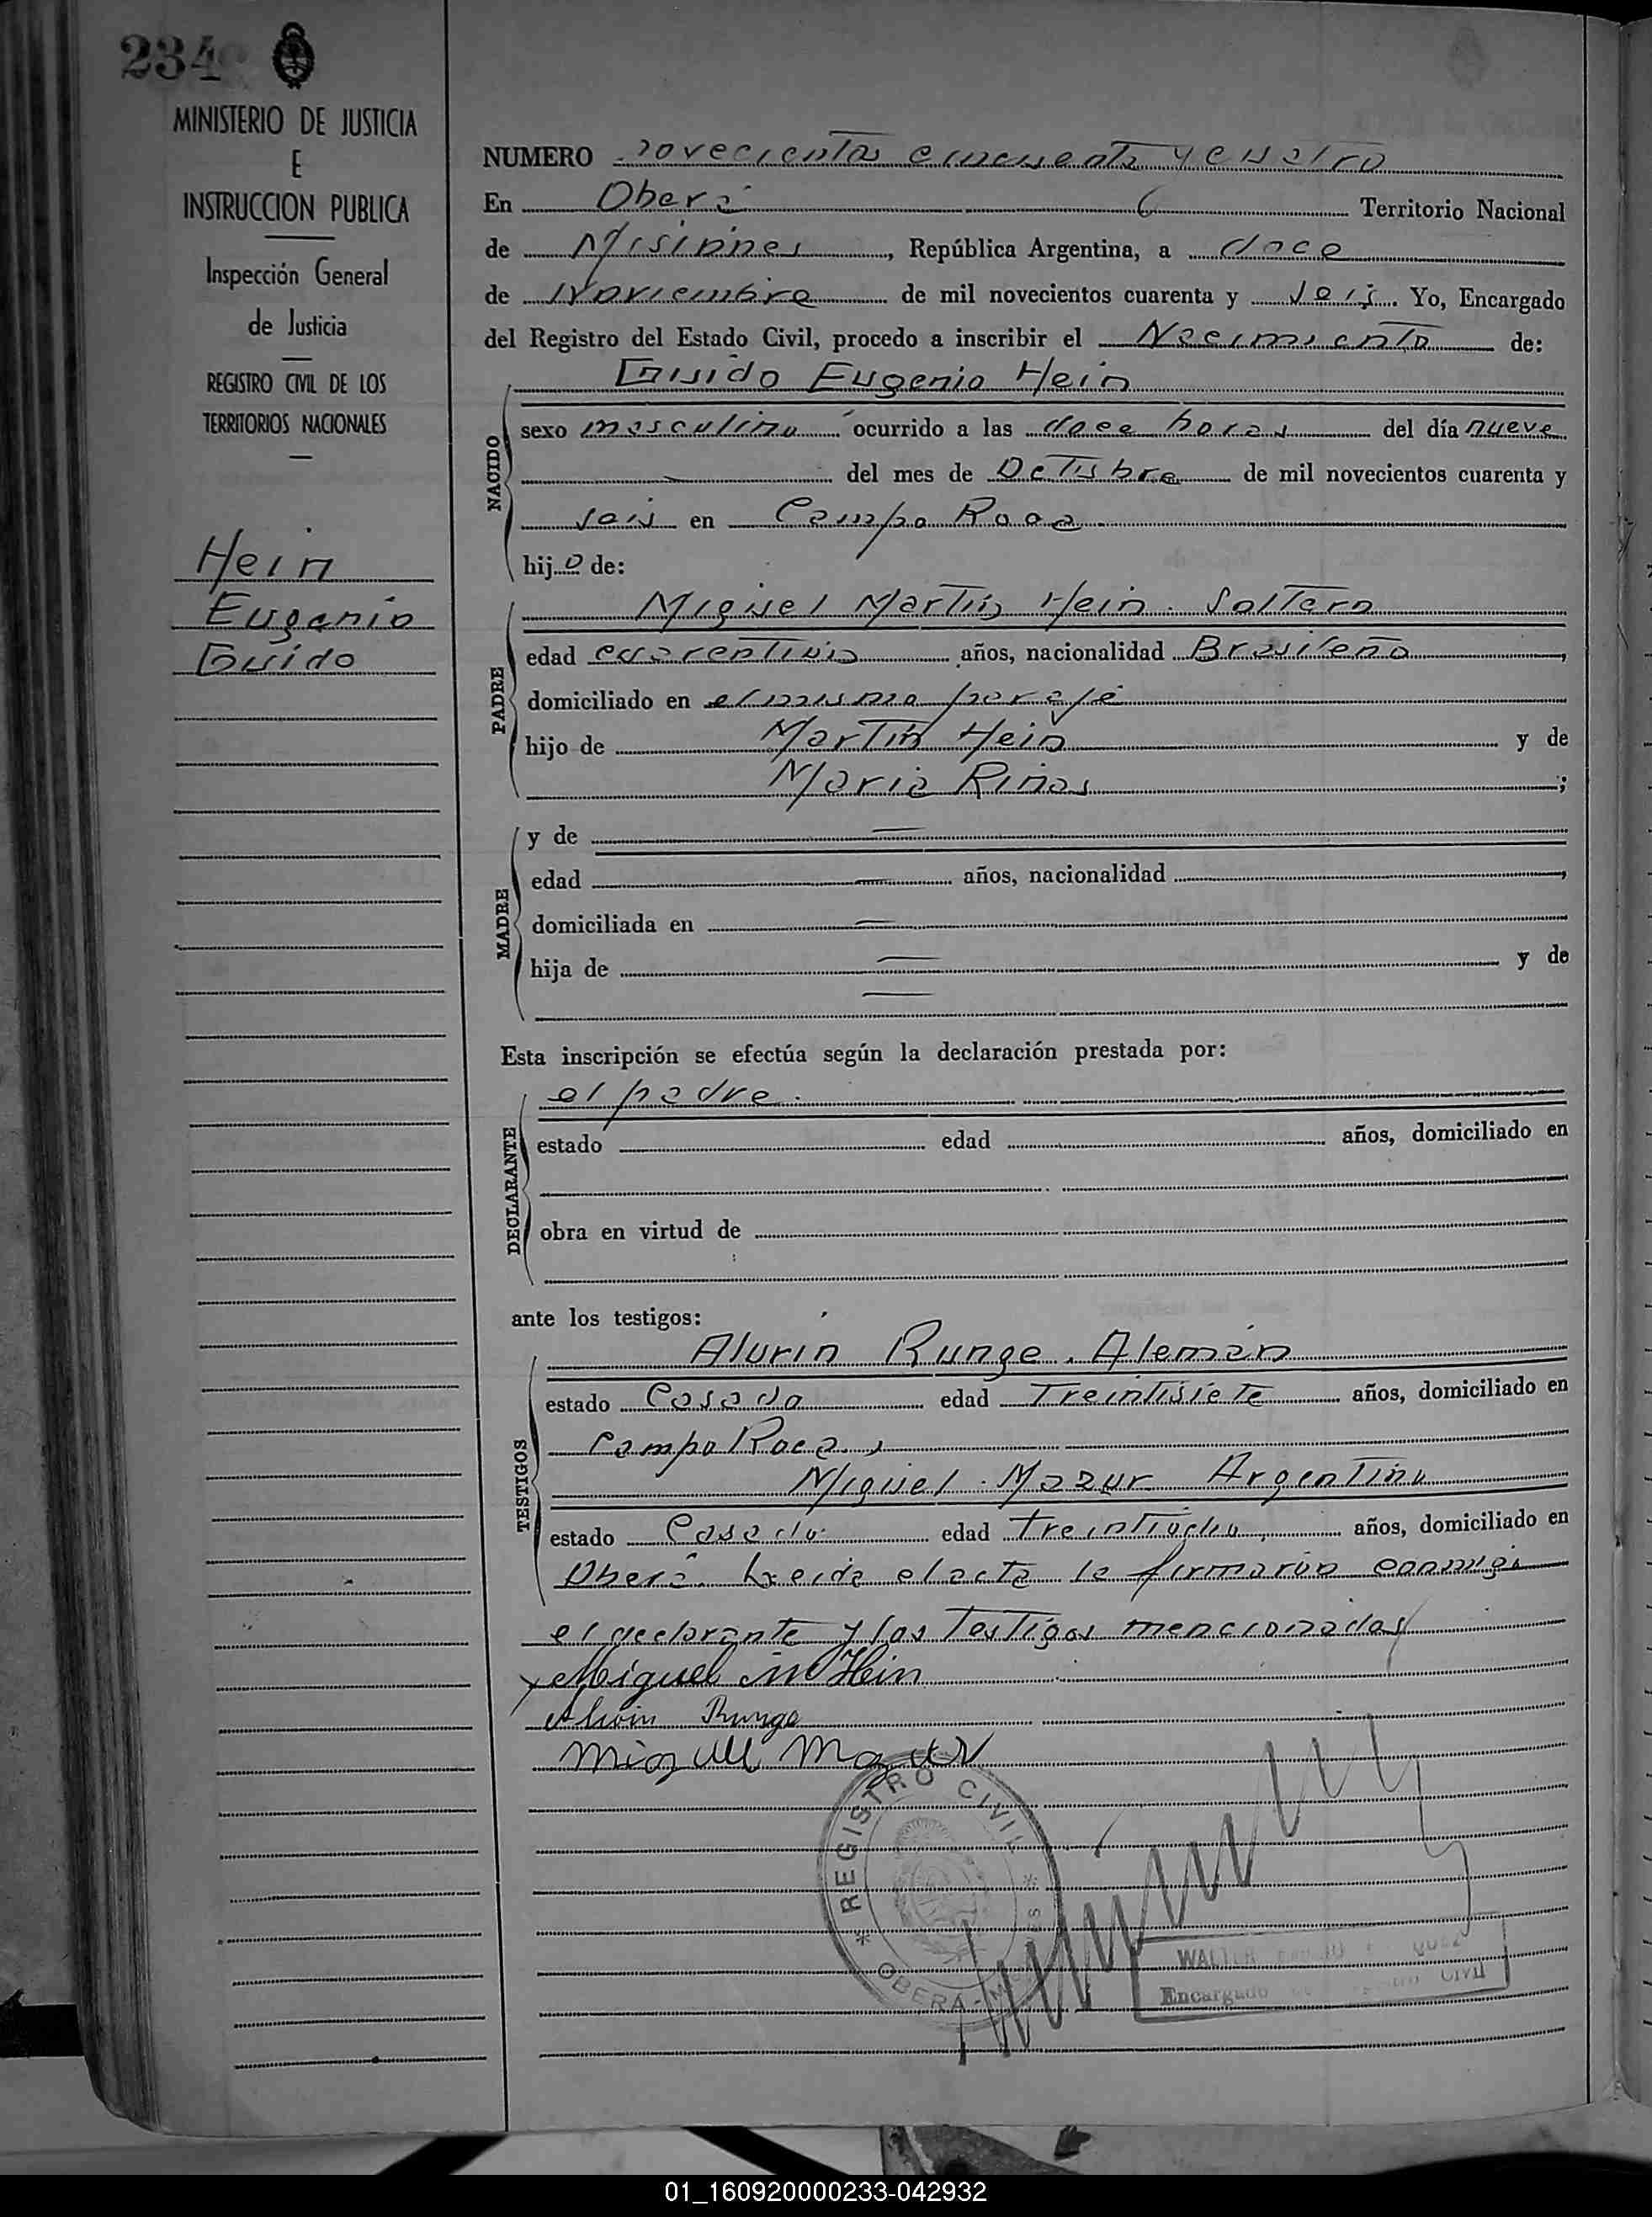 234
MINISTERIO DE JUSTICIA
E
INSTRUCCION PUBLICA
Inspección General
de Justicia
REGISTRO CIVIL DE LOS
TERRITORIOS NACIONALES
Hein
Eugenio
Guido
NUMERO novecientos cincuenta y cuatro
En Oberá Territorio Nacional
de Misiones, República Argentina, a doce
de Noviembre de mil novecientos cuarenta y seis. Yo, Encargado
del Registro del Estado Civil, procedo a inscribir el Nacimiento de:
NACIDO
Guido Eugenio Hein
sexo masculino ocurrido a las doce horas del día nueve
del mes de Octubre de mil novecientos cuarenta y
seis en Campo Roca
hijo de:
PADRE
Miguel Martín Hein. Soltero
edad cuarentiún años, nacionalidad Brasileño,
domiciliado en el mismo paraje
hijo de Martín Hein y de
María Riñas;
MADRE
y de
edad años, nacionalidad,
domiciliada en
hija de y de
Esta inscripción se efectúa según la declaración prestada por:
DECLARANTE
el padre.
estado edad años, domiciliado en
obra en virtud de
ante los testigos:
TESTIGOS
Alvrin Runge. Alemán
estado Casado edad Treintisiete años, domiciliado en
Campo Roca,
Miguel Mazur Argentino
estado Casado edad treintiocho, años, domiciliado en
Oberá. Leída el acta la firmarón conmigo
el declarante y los Testigos mencionados
Miguel M Hein
Alwin Runge
Miguel Mazur
* REGISTRO CIVIL *
OBERA -
WALTER
Encargado Civil
01_160920000233-042932